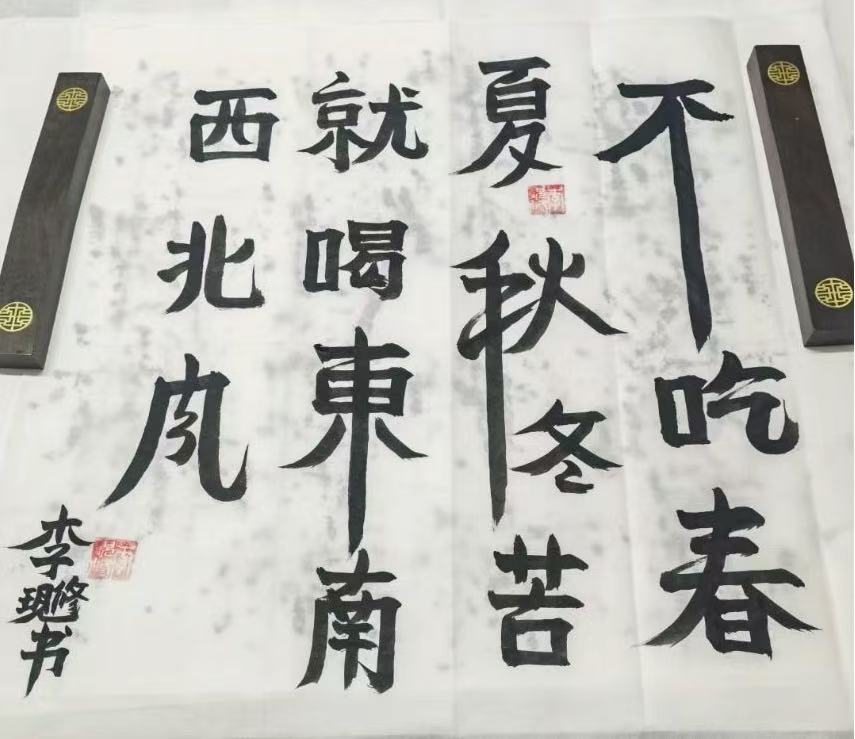 不吃春
夏秋冬苦
就喝東南
西北风
李现修书